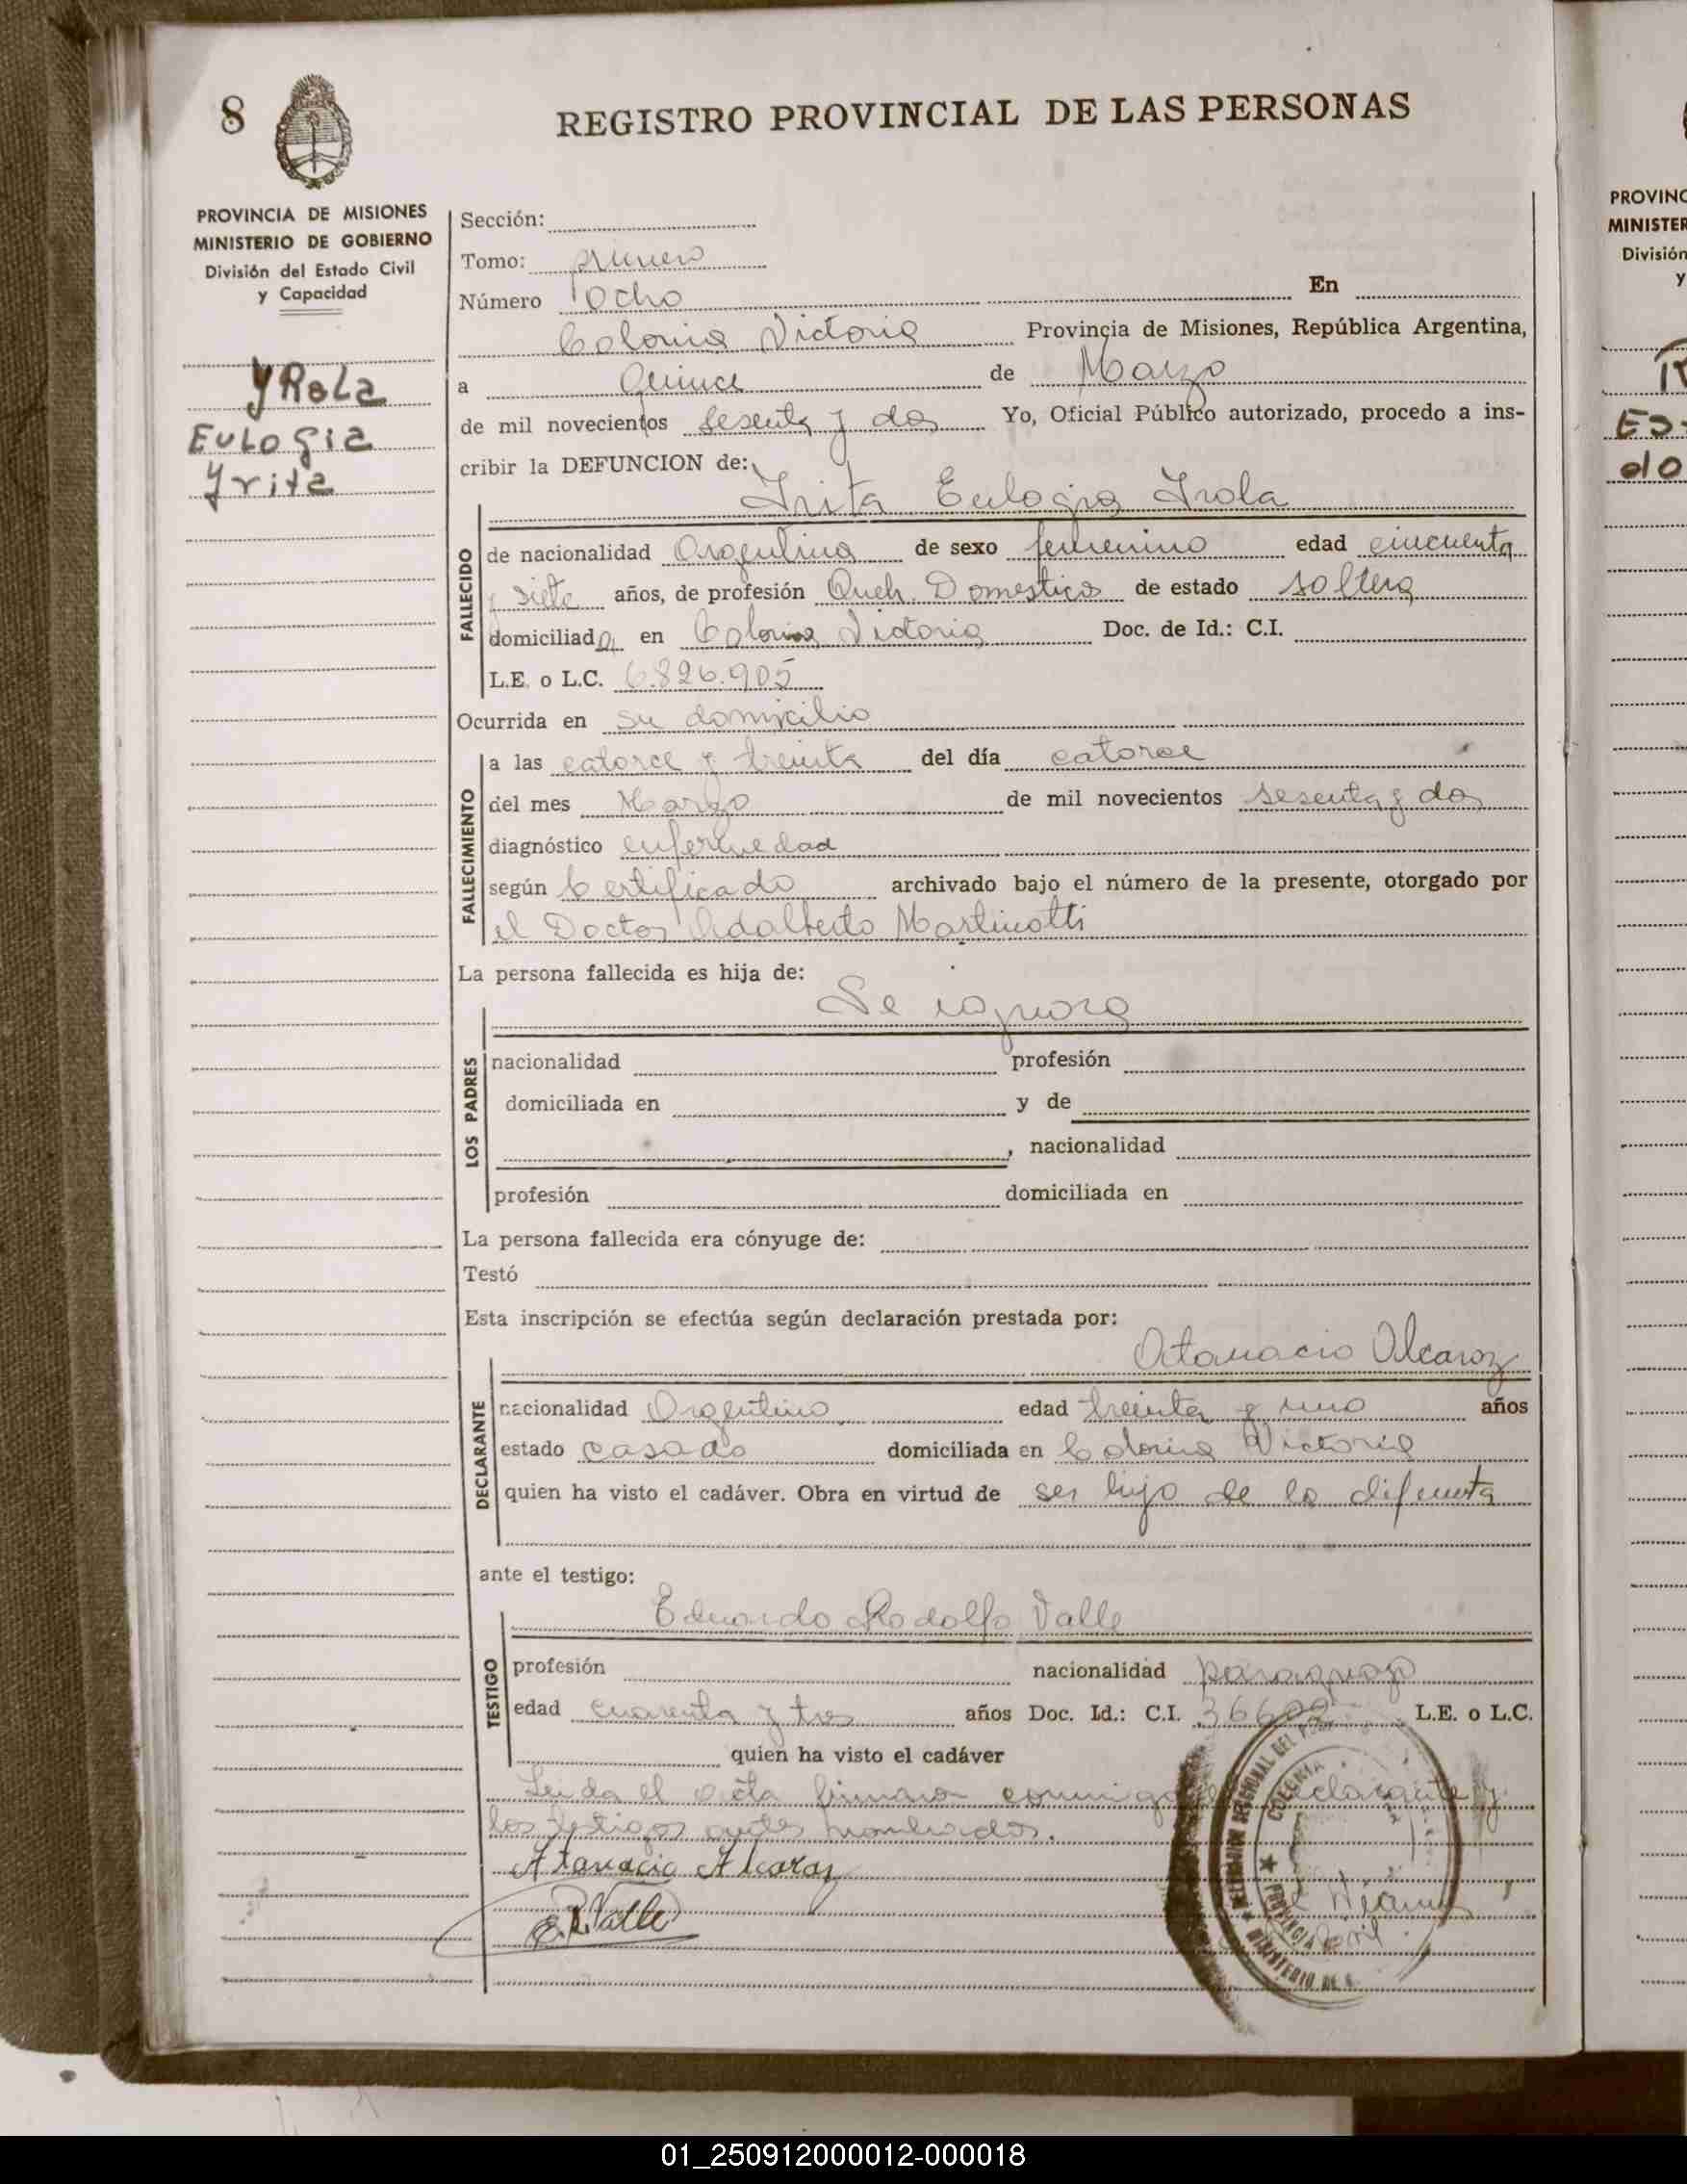 8
REGISTRO PROVINCIAL DE LAS PERSONAS
PROVINCIA DE MISIONES
MINISTERIO DE GOBIERNO
División del Estado Civil
y Capacidad
YRoLa
EuLogia
Yrita
Sección:
Tomo: primero
Número ocho En
Colonia Victoria Provincia de Misiones, República Argentina,
a Quince de Marzo
de mil novecientos sesenta y dos Yo, Oficial Público autorizado, procedo a ins-
cribir la DEFUNCION de:
Irita Eulogia Irola
FALLECIDO
de nacionalidad Argentina de sexo femenino edad cincuenta
y siete años, de profesión Queh. Domestico de estado soltera
domiciliada en Colonia Victoria Doc. de Id.: C.I.
L.E. o L.C. 6.826.905
Ocurrida en su domicilio
FALLECIMIENTO
a las catorce y treinta del día catorce
del mes Marzo de mil novecientos sesenta y dos
diagnóstico enfermedad
según Certificado archivado bajo el número de la presente, otorgado por
el Doctor Adalberto Martinotti
La persona fallecida es hija de:
Se ignora
LOS PADRES
nacionalidad profesión
domiciliada en y de
, nacionalidad
profesión domiciliada en
La persona fallecida era cónyuge de:
Testó
Esta inscripción se efectúa según declaración prestada por:
Atanacio Alcaraz
DECLARANTE
nacionalidad Argentino edad treinta y uno años
estado casado domiciliada en Colonia Victoria
quien ha visto el cadáver. Obra en virtud de ser hijo de la difunta
ante el testigo:
Eduardo Rodolfo Valle
TESTIGO
profesión nacionalidad paraguayo
edad cuarenta y tres años Doc. Id.: C.I. L.E. o L.C.
quien ha visto el cadáver
Leida el acta firman conmigo declarante y
los testigos antes nombrados.
Atanacio Alcaraz
E.R.Valle
COLONIA
PROVINCIA
MINISTERIO DE
PROVINC
MINISTER
División
y
01_250912000012-000018